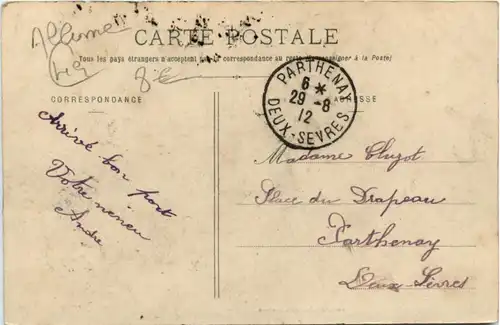 Allume
CARTE POSTALE
Tous les pays étrangers n'acceptent pas la correspondance au recto (Se renseigner à la Poste)
CORRESPONDANCE
ADRESSE
PARTHENAY
6 *
29 - 8
12
DEUX-SEVRES
Arrivé bon port
Votre neveu
Andre
Madame Cluzot
Place du Drapeau
Parthenay
Deux-Sèvres